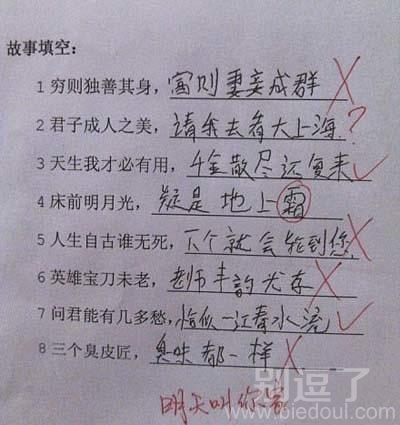 故事填空：
1 穷则独善其身，富则妻妾成群
2 君子成人之美，请我去看大上海？
3 天生我才必有用，千金散尽还复来
4 床前明月光，疑是地上霜
5 人生自古谁无死，下个就会轮到您
6 英雄宝刀未老，老师丰韵尤存
7 问君能有几多愁，恰似一江春水流
8 三个臭皮匠，臭味都一样
明天叫你家
别逗了
www.biedoul.com